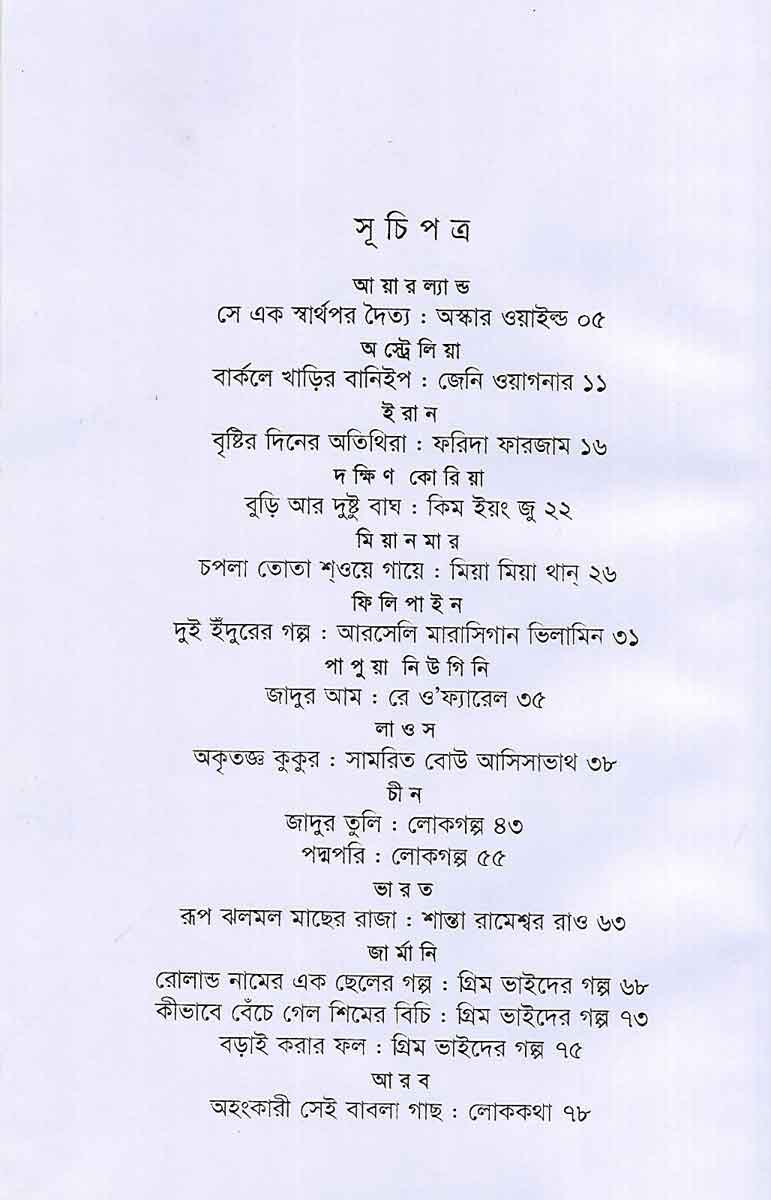 সূচিপত্র
আয়ারল্যান্ড
সে এক স্বার্থপর দৈত্য : অস্কার ওয়াইল্ড ০৫
অস্ট্রেলিয়া
বার্কলে খাড়ির বানিইপ : জেনি ওয়াগনার ১১
ইরান
বৃষ্টির দিনের অতিথিরা : ফরিদা ফারজাম ১৬
দক্ষিণ কোরিয়া
বুড়ি আর দুষ্টু বাঘ : কিম ইয়ং জু ২২
মিয়ানমার
চপলা তোতা শ্ওয়ে গায়ে : মিয়া মিয়া থান্ ২৬
ফিলিপাইন
দুই ইঁদুরের গল্প : আরসেলি মারাসিগান ভিলামিন ৩১
পাপুয়া নিউগিনি
জাদুর আম : রে ও'ফ্যারেল ৩৫
লাওস
অকৃতজ্ঞ কুকুর : সামরিত বোউ আসিসাভাথ ৩৮
চীন
জাদুর তুলি : লোকগল্প ৪৩
পদ্মপরি : লোকগল্প ৫৫
ভারত
রূপ ঝলমল মাছের রাজা : শান্তা রামেশ্বর রাও ৬৩
জার্মানি
রোলান্ড নামের এক ছেলের গল্প : গ্রিম ভাইদের গল্প ৬৮
কীভাবে বেঁচে গেল শিমের বিচি : গ্রিম ভাইদের গল্প ৭৩
বড়াই করার ফল : গ্রিম ভাইদের গল্প ৭৫
আরব
অহংকারী সেই বাবলা গাছ : লোককথা ৭৮